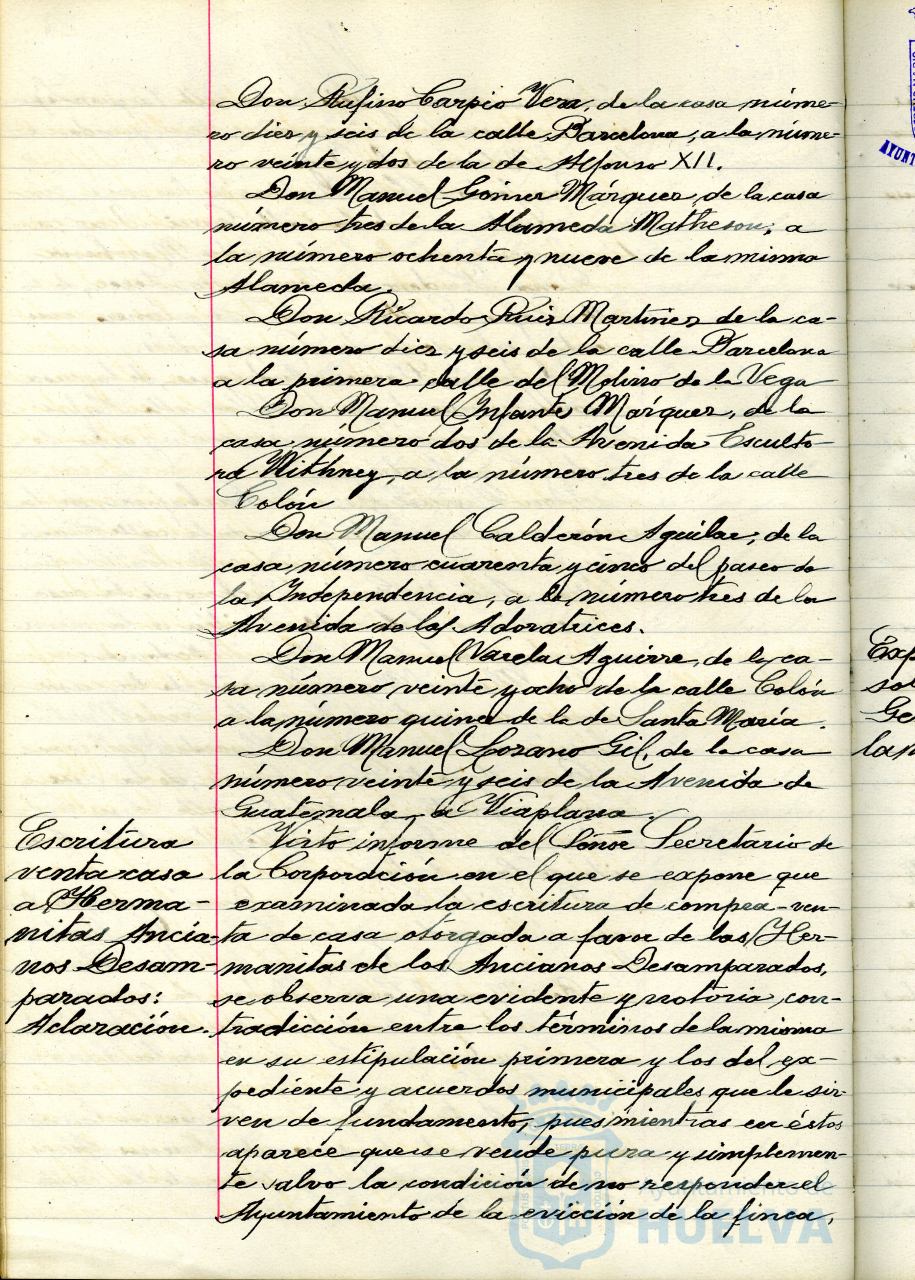 Don Rufino Carpio Vera, de la casa núme-
ro diez y seis de la calle Barcelona, a la núme-
ro veinte y dos de la de Alfonso XII.
Don Manuel Gómez Márquez, de la casa
número tres de la Alameda Matheson, a
la número ochenta y nueve de la misma
Alameda.
Don Ricardo Ruiz Martínez de la ca-
sa número diez y seis de la calle Barcelona
a la primera calle del Molino de la Vega
Don Manuel Infante Márquez, de la
casa número dos de la Avenida Esculto-
ra Withney, a la número tres de la calle
Colón
Don Manuel Calderón Aguilar, de la
casa número cuarenta y cinco del paseo de
la Independencia, a la número tres de la
Avenida de las Adoratrices.
Don Manuel Varela Aguirre, de la ca-
sa número veinte y ocho de la calle Colón
a la número quince de la de Santa María.
Don Manuel Lozano Gil, de la casa
número veinte y seis de la Avenida de
Guatemala, a Viaplana.
Escritura
venta casa
a Herma-
nitas Ancia-
nos Desam-
parados:
Aclaración.
Visto informe del Señor Secretario de
la Corporación en el que se expone que
examinada la escritura de compra-ven-
ta de casa otorgada a favor de las Her-
manitas de los Ancianos Desamparados,
se observa una evidente y notoria con-
tradicción entre los términos de la misma
en su estipulación primera y los del ex-
pediente y acuerdos municipales que le sir-
ven de fundamento, pues mientras en éstos
aparece que se vende pura y simplemen-
te salvo la condición de no responder el
Ayuntamiento de la evicción de la finca,
Ayuntamiento de
HUELVA
Exp
Ge